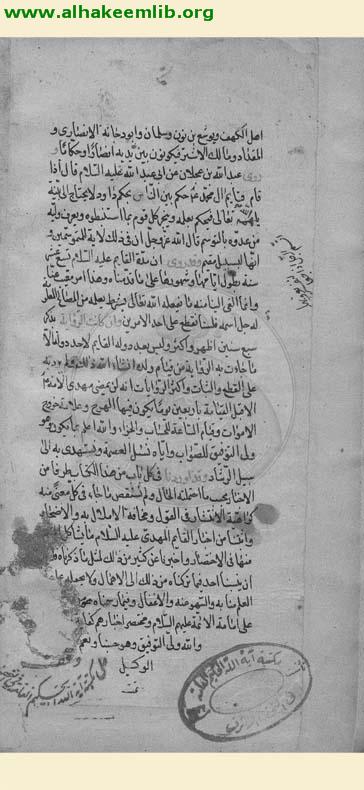 www.alhakeemlib.org
اصل الكهف ويوشع بن نون وسلمان وابو دجانة الانصارى و
المقداد ومالك الاشتر فيكونون بين يديه انصارا وحكاما و
روى عبد الله بن عجلان عن ابى عبد الله عليه السلام قال اذا
قام قايم ال محمد حكم بين الناس بحكم داود لا يحتاج الى بينة
يلهمه الله تعالى فيحكم بعلمه ويخبر كل قوم بما استبطنوه ويعرف وليه
من عدوه بالتوسم قال الله عز وجل ان فى ذلك لايات للمتوسمين و
انها لبسبيل مقيم وقد روى ان مدة القايم عليه السلام تسع عشر
سنة يطول ايامها وشهورها على ما قدمناه وهذا امر مغيب عنا
وانما القى الينا منه ما يفعله الله تعالى بشرط يعلمه من المصالح المعلومة
له جل اسمه فلسنا نقطع على احد الامرين وان كانت الرواية بذكر
سبع سنين اظهر واكثر وليس بعد دولة القايم لاحد دولة الا
ما جاءت به الرواية من قيام ولده انشاء الله ذلك ولم يرد به
على القطع والثبات واكثر الروايات انه لن يمضى مهدى الامة
الا قبل القيامة باربعين يوما يكون فيها الهرج وعلامة خروج
الاموات وقيام الساعة للحساب والجزاء والله اعلم بما يكون وهو
ولى التوفيق للصواب واياه نسئل العصمة ونستهدى به الى
سبيل الرشاد وقد اوردنا فى كل باب من هذا الكتاب طرفا من
الاخبار بحسب ما احتمله الحال ولم نستقص ما جاء فى كل معنى منه
كراهة الانتشار فى القول ومخافة الاملال به والاضجار
واثبتنا من اخبار القايم المهدى عليه السلام ما يشاكل
منها فى الاختصار واضربنا عن كثير من ذلك لمثل ما ذكرناه
ان ينسبنا احد فيما تركناه من ذلك الى الاهمال ولا يحمله على
العلم منا به والسهو عنه والاغفال وفيما رسمناه من
على امامة الائمة عليهم السلام ومختصر اخبارهم كفاية
والله ولى التوفيق وهو حسبنا ونعم
الوكيل
تمت